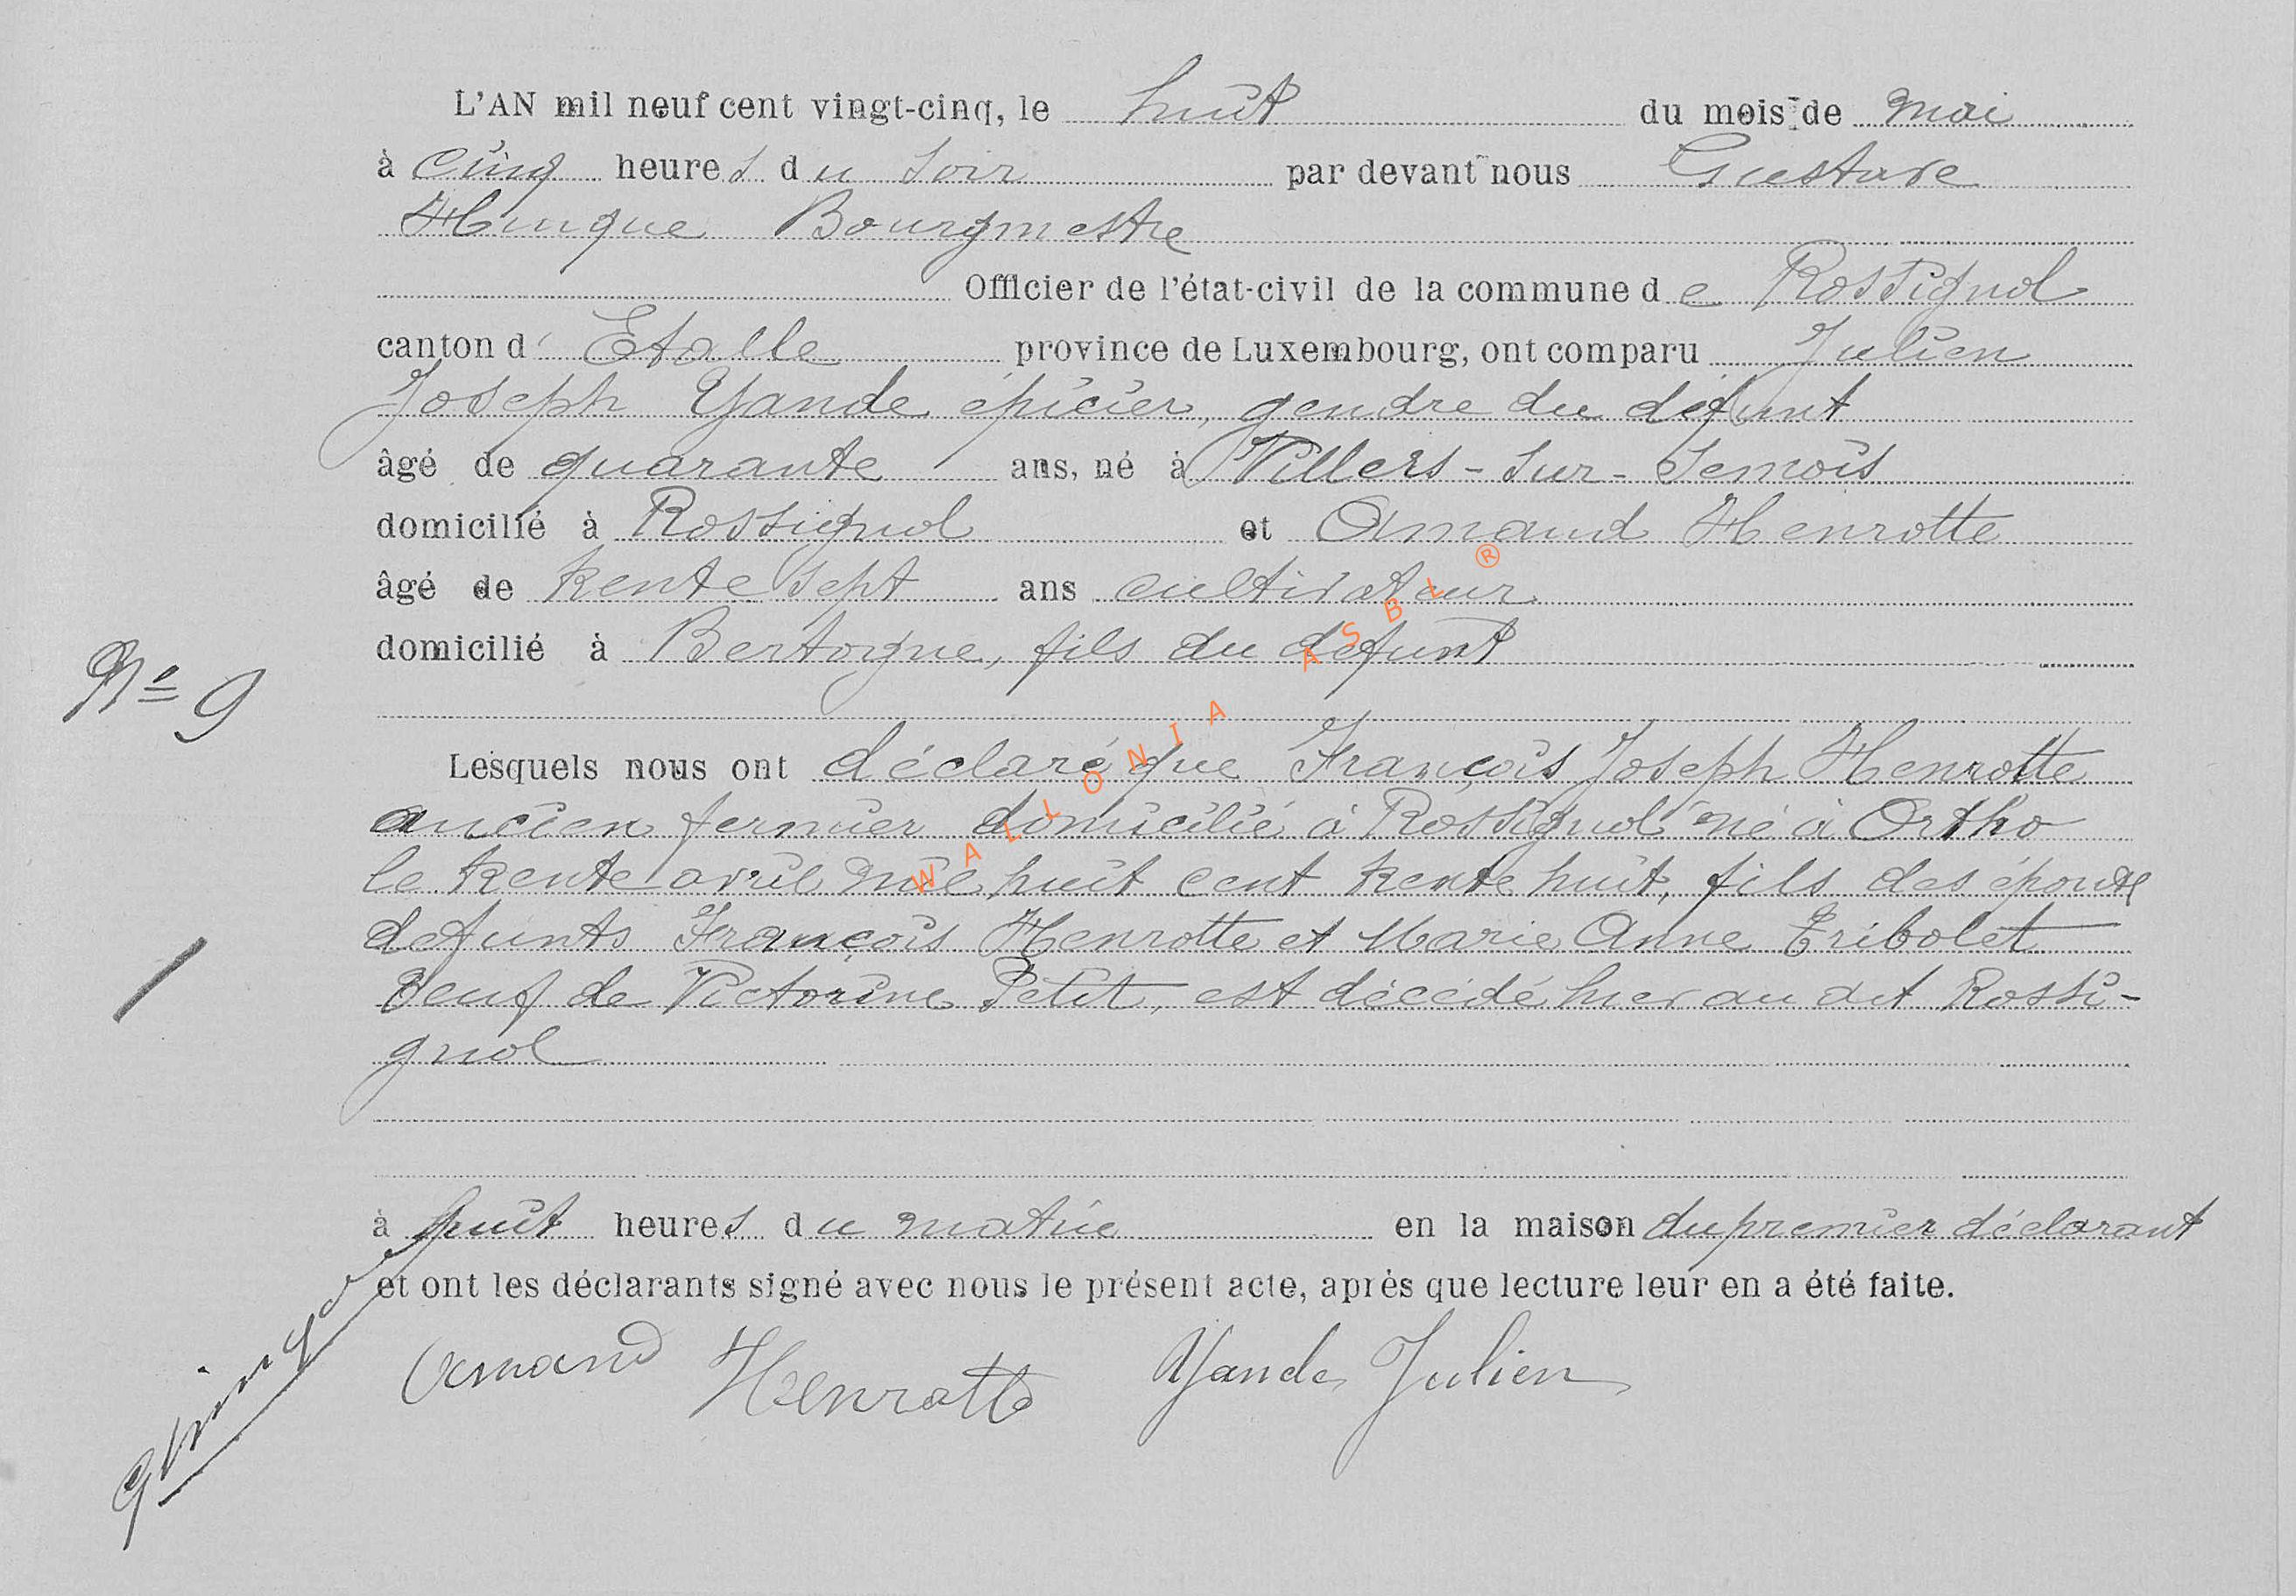 L'AN mil neuf cent vingt-cinq, le huit du mois de mai
à cinq heures du soir par devant nous Gustave
Hinque Bourgmestre
Officier de l'état-civil de la commune de Rossignol
canton d'Etalle province de Luxembourg, ont comparu Julien
Joseph Yande épicier, gendre du défunt
âgé de quarante ans, né à Villers-sur-Semois
domicilié à Rossignol et Amand Henrotte
âgé de trente sept ans cultivateur
domicilié à Bertogne, fils du défunt
N° 9
Lesquels nous ont déclaré que François Joseph Henrotte
ancien fermier domicilié à Rossignol né à Ortho
le trente avril mil huit cent trente huit, fils des époux
défunts François Henrotte et Marie Anne Tribolet
veuf de Victorine Petit, est décédé hier au dit Rossi-
gnol
à huit heures du matin en la maison du premier déclarant
et ont les déclarants signé avec nous le présent acte, après que lecture leur en a été faite.
Amand Henrotte Yande Julien
WALLONIA ASBL ®